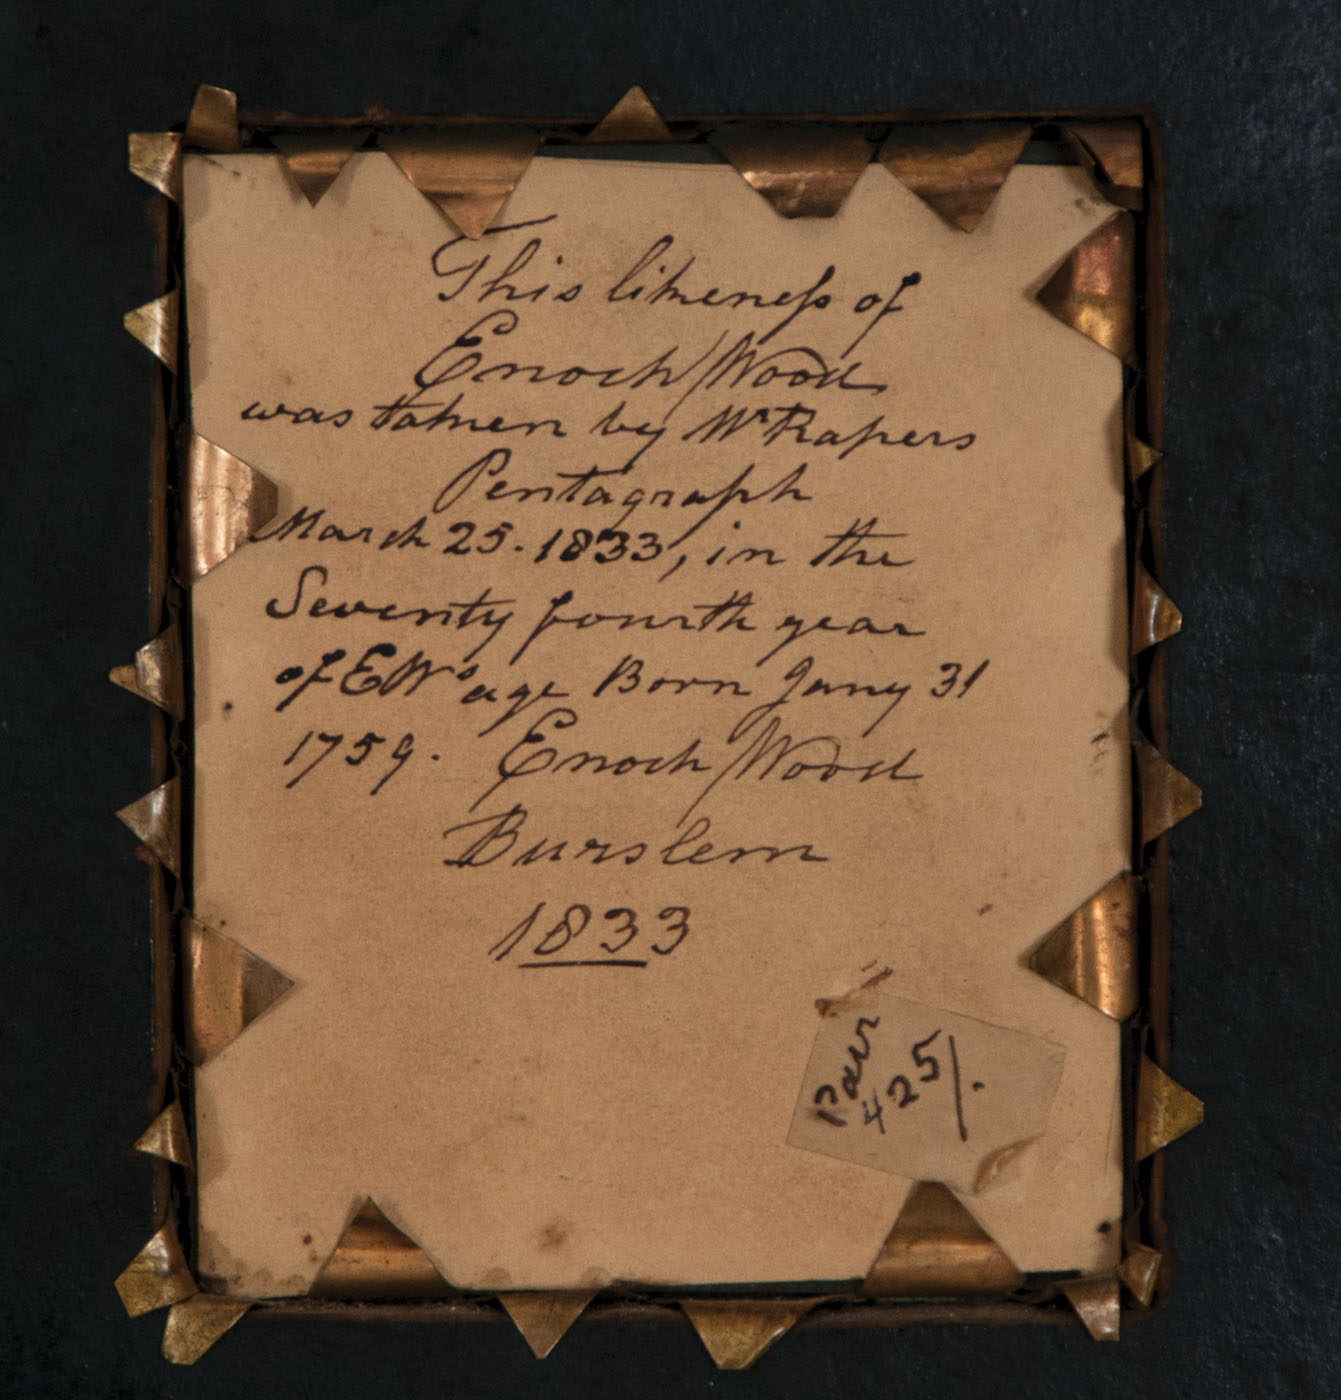 This likeneſs of
Enoch Wood
was taken by Mr Rapers
Pentagraph
March 25. 1833, in the
Seventy fourth year
of EW's age Born Jany 31
1759. Enoch Wood
Burslem
1833
Pair
425/.